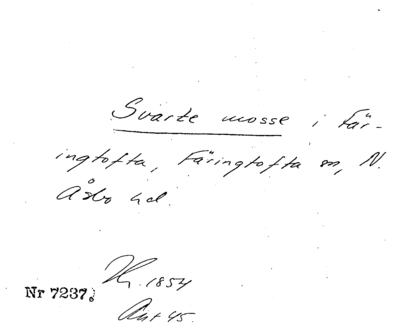 Svarte mosse i Fär-
ingtofta, Färingtofta sn, N.
Åsbo hd.
1854
Nr 7237.
Ant 45.